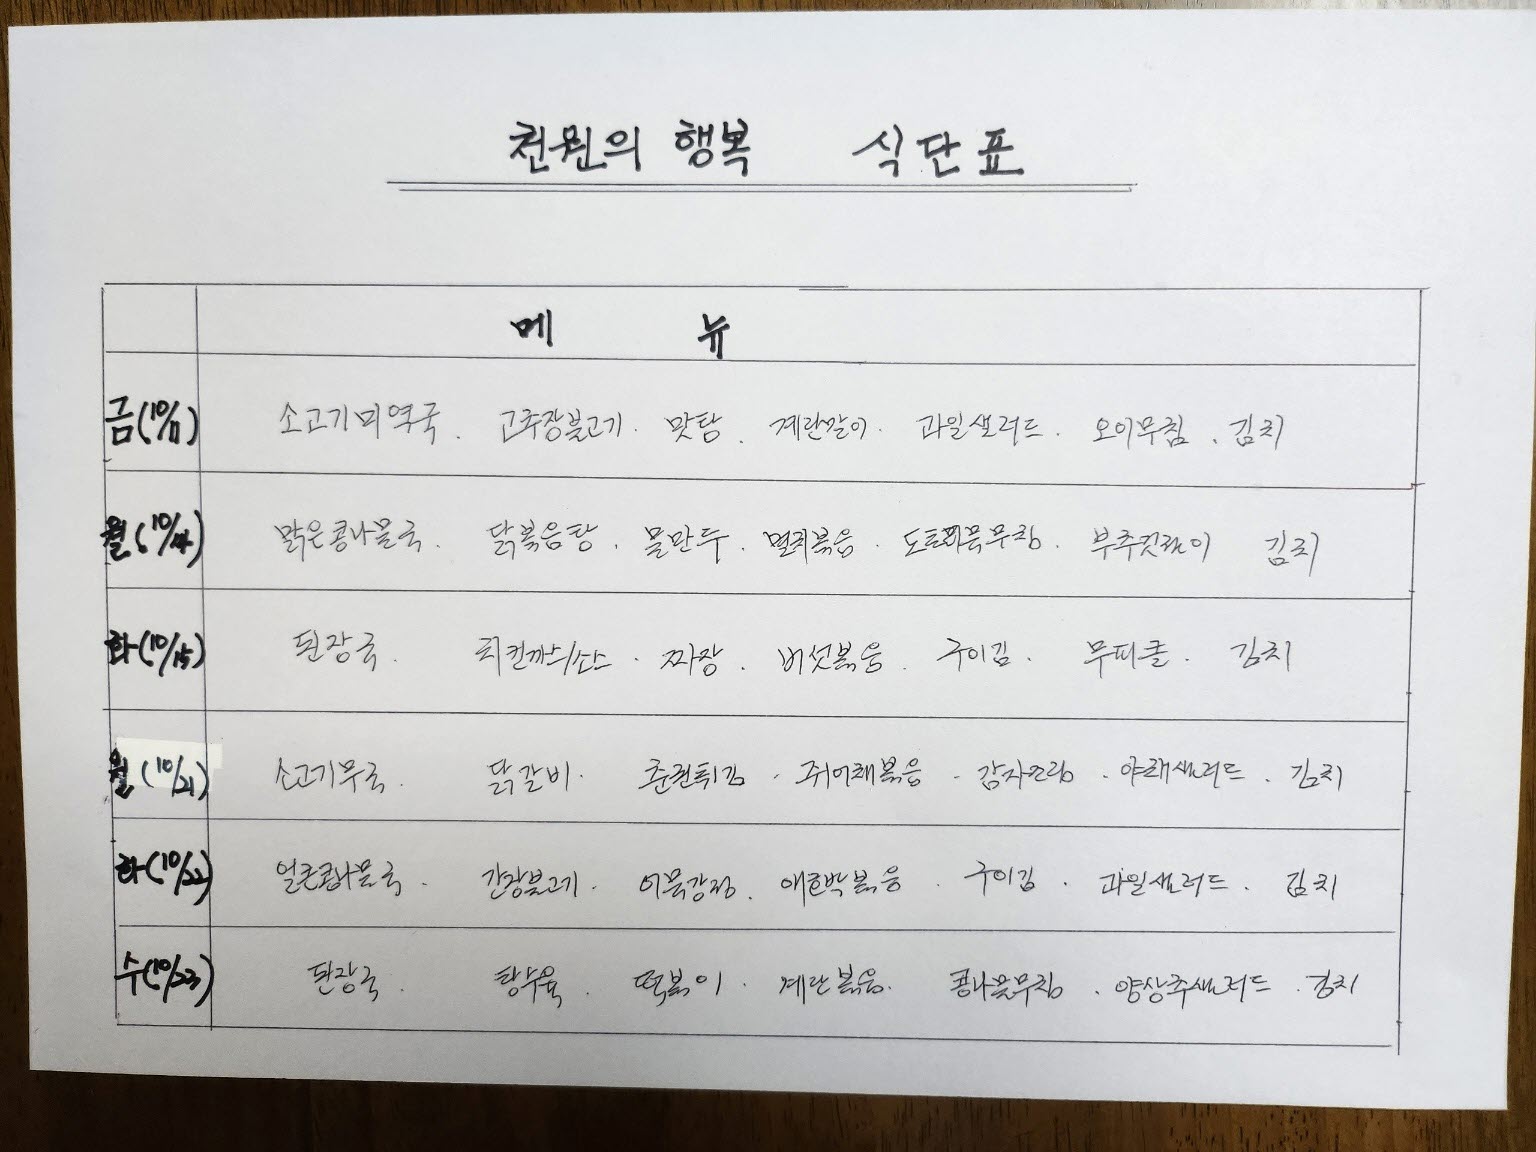 천원의 행복 식단표
메 뉴
금(10/11) 소고기미역국. 고추장불고기. 맛탕. 계란말이. 과일샐러드. 오이무침. 김치
월(10/14) 맑은콩나물국. 닭볶음탕. 물만두. 멸치볶음. 도토리묵무침. 부추겉절이 김치
화(10/15) 된장국. 치킨까스/소스. 짜장. 버섯볶음. 구이김. 무피클. 김치
월(10/21) 소고기무국. 닭갈비. 춘권튀김. 쥐어채볶음. 감자조림. 야채샐러드. 김치
화(10/22) 얼큰콩나물국. 간장불고기. 어묵강정. 애호박볶음. 구이김. 과일샐러드. 김치
수(10/23) 된장국. 탕수육. 떡볶이. 계란볶음. 콩나물무침. 양상추샐러드. 김치